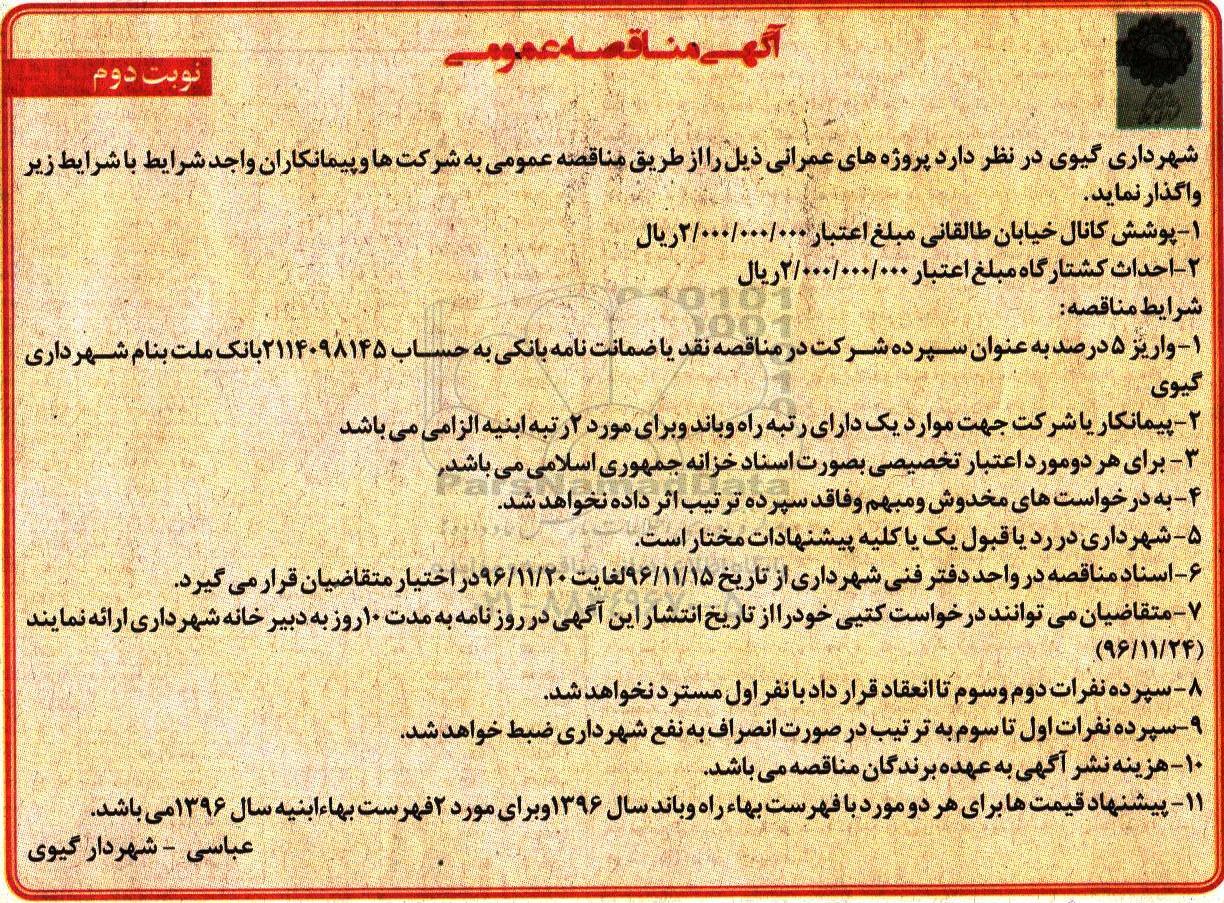 آگهی مناقصه عمومی
نوبت دوم
شهرداری گیوی در نظر دارد پروژه های عمرانی ذیل را از طریق مناقصه عمومی به شرکت ها و پیمانکاران واجد شرایط با شرایط زیر
واگذار نماید.
۱-پوشش کانال خیابان طالقانی مبلغ اعتبار ۲/۰۰۰/۰۰۰/۰۰۰ریال
۲-احداث کشتارگاه مبلغ اعتبار ۲/۰۰۰/۰۰۰/۰۰۰ریال
شرایط مناقصه:
۱-واریز ۵درصد به عنوان سپرده شرکت در مناقصه نقد یا ضمانت نامه بانکی به حساب ۲۱۱۴۰۹۸۱۴۵بانک ملت بنام شهرداری
گیوی
۲-پیمانکار یا شرکت جهت موارد یک دارای رتبه راه وباند وبرای مورد ۲رتبه ابنیه الزامی می باشد
۳- برای هر دومورد اعتبار تخصیصی بصورت اسناد خزانه جمهوری اسلامی می باشد.
۴-به درخواست های مخدوش ومبهم وفاقد سپرده ترتیب اثر داده نخواهد شد.
۵-شهرداری در رد یا قبول یک یا کلیه پیشنهادات مختار است.
۶-اسناد مناقصه در واحد دفتر فنی شهرداری از تاریخ ۹۶/۱۱/۱۵لغایت ۹۶/۱۱/۲۰در اختیار متقاضیان قرار می گیرد.
۷-متقاضیان می توانند درخواست کتبی خود را از تاریخ انتشار این آگهی در روزنامه به مدت ۱۰روز به دبیرخانه شهرداری ارائه نمایند
(۹۶/۱۱/۲۴)
۸-سپرده نفرات دوم وسوم تا انعقاد قرار داد با نفر اول مسترد نخواهد شد.
۹-سپرده نفرات اول تا سوم به ترتیب در صورت انصراف به نفع شهرداری ضبط خواهد شد.
۱۰-هزینه نشر آگهی به عهده برندگان مناقصه می باشد.
۱۱- پیشنهاد قیمت ها برای هر دو مورد با فهرست بهاء راه وباند سال ۱۳۹۶وبرای مورد ۲فهرست بهاءابنیه سال ۱۳۹۶می باشد.
عباسی - شهردار گیوی
ParsNamadData